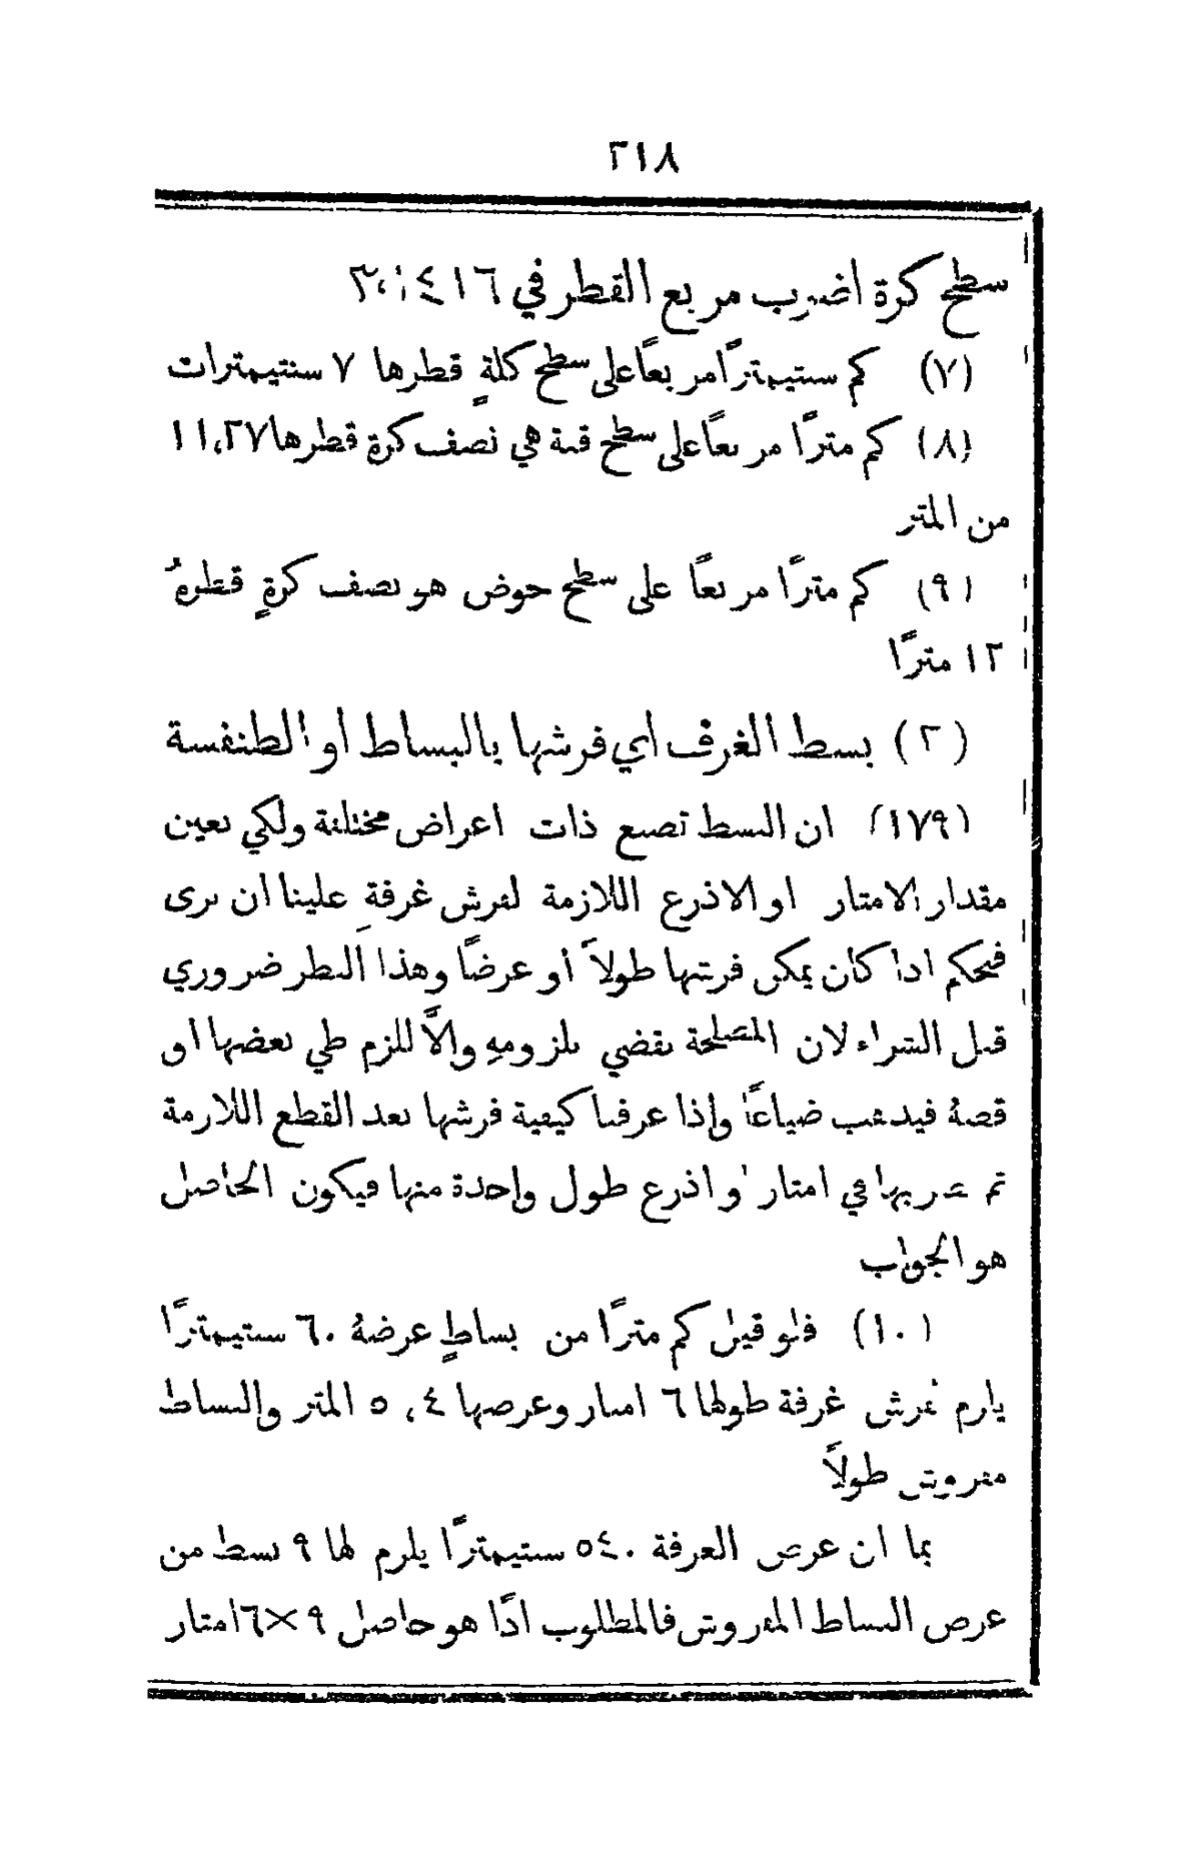 ٢١٨
سطح كرة اضرب مربع القطر في ٣،١٤١٦
(٧) كم سنتيمترًا مربعًا على سطح كلةٍ قطرها ٧ سنتيمترات
(٨) كم مترًا مربعًا على سطح قبة هي نصف كرة قطرها ١١،٢٧
من المتر
(٩) كم مترًا مربعًا على سطح حوض هو نصف كرةٍ قطرهُ
١٢ مترًا
(٢) بسط الغرف اي فرشها بالبساط او الطنفسة
(١٧٩) ان البسط تصنع ذات اعراض مختلفة ولكي نعين
مقدار الامتار او الاذرع اللازمة لفرش غرفةٍ علينا ان نرى
فنحكم اذا كان يمكن فرشها طولاً أو عرضًا وهذا النظر ضروري
قبل الشراء لان المصلحة تقضي بلزومهِ والاَّ للزم طي بعضها او
قصهُ فيذهب ضياعًا وإذا عرفنا كيفية فرشها نعد القطع اللازمة
ثم نضربها في امتار او اذرع طول واحدة منها فيكون الحاصل
هو الجواب
(١٠) فلو قيل كم مترًا من بساطٍ عرضهُ ٦٠ سنتيمترًا
يلزم لفرش غرفة طولها ٦ امتار وعرضها ٥،٤ المتر والبساط
مفروش طولاً
بما ان عرض الغرفة ٥٤٠ سنتيمترًا يلزم لها ٩ بسط من
عرض البساط المفروش فالمطلوب اذًا هو حاصل ٩×٦ امتار